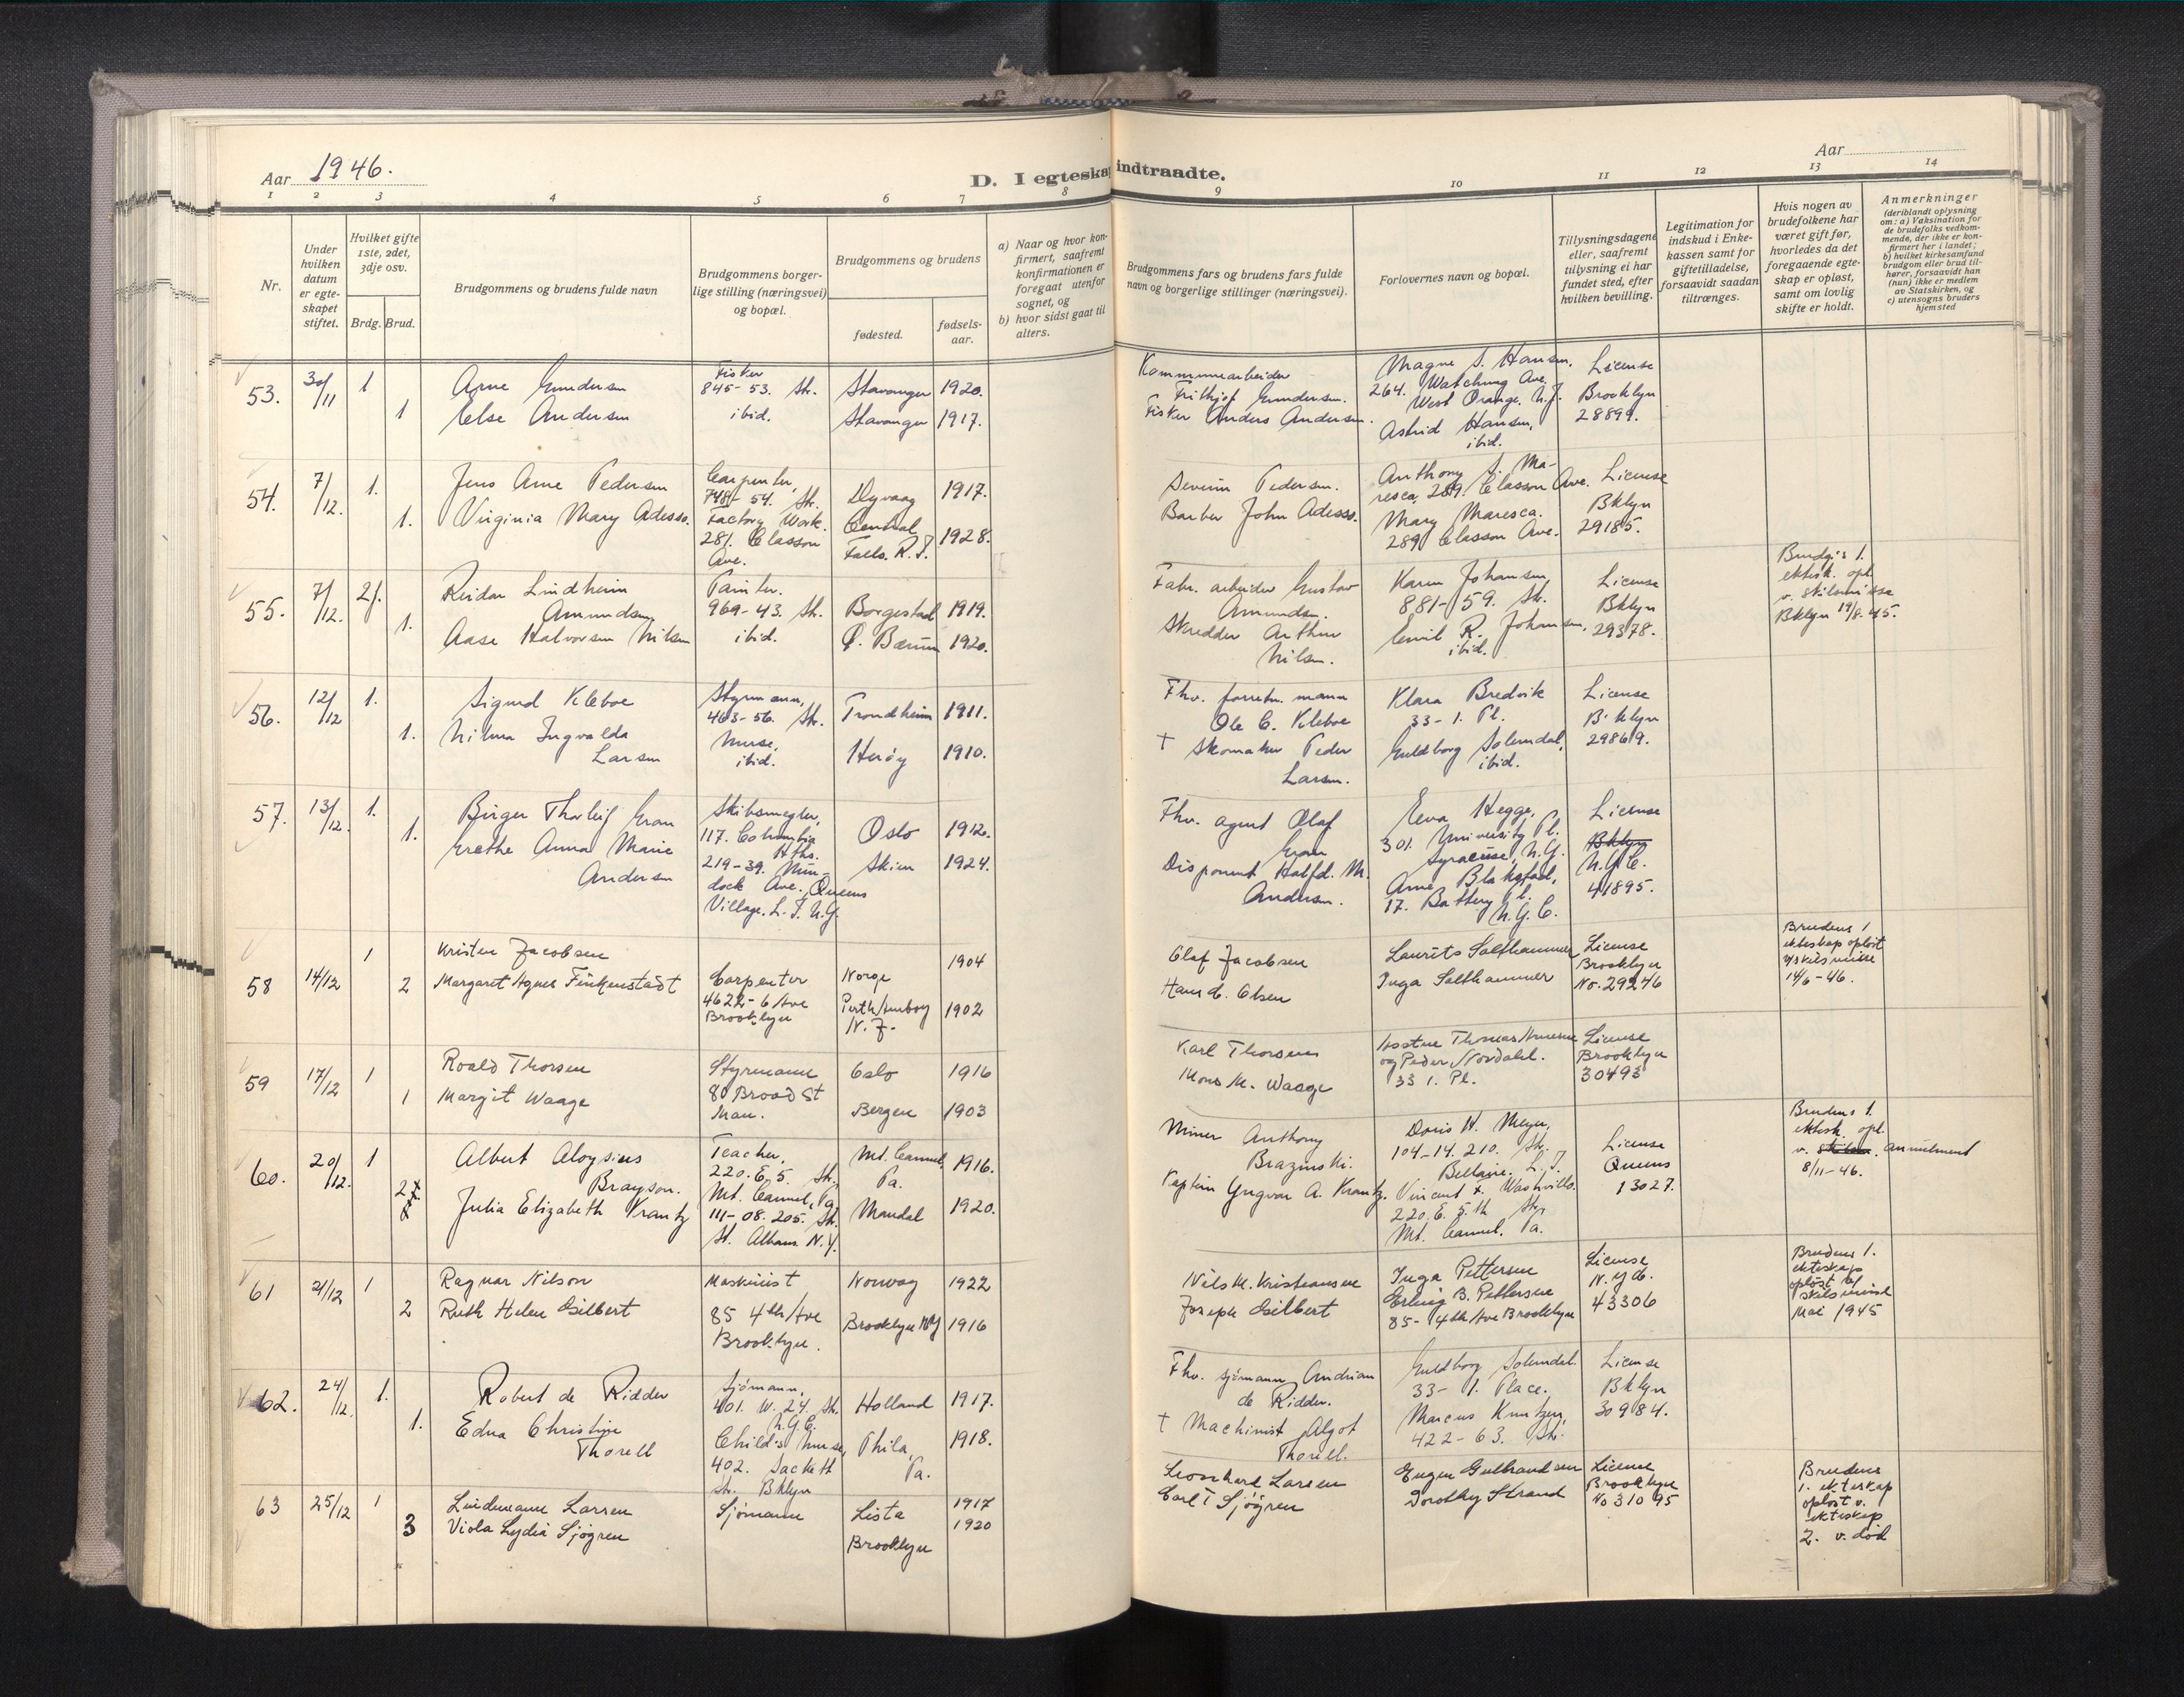 Aar 1946.
D. I egteskap indtraadte.
Aar
1 2 3 4 5 6 7 8 9 10 11 12 13 14
Nr.
Under hvilken datum er egteskapet stiftet.
Hvilket gifte 1ste, 2det, 3dje osv.
Brdg. Brud.
Brudgommens og brudens fulde navn
Brudgommens borgerlige stilling (næringsvei) og bopæl.
Brudgommens og brudens
fødested.
fødsels-aar.
a) Naar og hvor konfirmert, saafremt konfirmationen er foregaat utenfor sognet, og
b) hvor sidst gaat til alters.
Brudgommens fars og brudens fars fulde navn og borgerlige stillinger (næringsvei).
Forlovernes navn og bopæl.
Tillysningsdagene eller, saafremt tillysning ei har fundet sted, efter hvilken bevilling.
Legitimation for indskud i Enkekassen samt for giftetilladelse, forsaavidt saadan tiltrænges.
Hvis nogen av brudefolkene har været gift før, hvorledes da det foregaaende egteskap er opløst, samt om lovlig skifte er holdt.
Anmerkninger
(deriblandt oplysning om: a) Vaksination for de brudefolks vedkommende, der ikke er konfirmert her i landet; b) hvilket kirkesamfund brudgom eller brud tilhører, forsaavidt han (hun) ikke er medlem av Statskirken, og c) utensogns bruders hjemsted
53. 30/11 1
Arne Gundersen
Fisker
845-53. Str.
Stavanger 1920.
1 Else Andersen
ibid.
Stavanger 1917.
Kommunearbeider
Frithjof Gundersen.
Fisker Anders Andersen.
Magne S. Hansen.
264. Watchung Ave.
West Orange. N.J.
Astrid Hansen,
ibid.
License
Brooklyn
28899.
54. 7/12. 1.
Jens Arne Pedersen
Carpenter,
748-54. Str.
Dyvaag 1917.
1. Virginia Mary Adesso.
Factory Work.
281. Classon
Ave.
Central
Falls. R.I. 1928.
Severin Pedersen.
Barber John Adesso.
Anthony S. Ma-
resca, 289. Classon Ave.
Mary Maresca.
289 Classon Ave.
License
Bklyn
29185.
55. 7/12. 2.
Reidar Lindheim
Amundsen
Painter.
969-43. Str.
Borgestad 1919.
1. Aase Halvorsen Nilsen
ibid.
Ø. Bærum 1920.
Fabr. arbeider Gustav
Amundsen.
Skredder Arthur
Nilsen.
Karen Johansen,
881-59. Str.
Emil R. Johansen,
ibid.
License
Bklyn
29378.
Brudg's 1.
ektesk. opl.
v. skilsmisse
Bklyn 19/8. 45.
56. 12/12 1.
Sigurd Kleboe
Styrmann,
463-56. Str.
Trondheim 1911.
1. Nilma Ingvalda
Larsen
Nurse,
ibid.
Herøy 1910.
Fhv. forretn. mann
Ole C. Kleboe
† Skomaker Peder
Larsen.
Klara Bredvik
33-1. Pl.
Guldborg Solemdal,
ibid.
License
B'klyn
29869.
57. 13/12. 1.
Birger Thorleif Gran
Skibsmegler,
117. Columbia
Hths.
Oslo 1912.
1. Grethe Anna Marie
Andersen
219-39. Mur-
dock Ave. Queens
Village. L.I. N.Y.
Skien 1924.
Fhv. agent Olaf
Gran
Disponent Halfd. M.
Andersen.
Eeva Hegge,
301. University Pl.
Syracuse, N.Y.
Arne Blakstad,
17. Battery Pl.
N.Y.C.
License
Bklyn
N.Y.C.
41895.
58 14/12 1
Kristen Jacobsen
1904
2 Margaret Agnes Finkenstadt
Carpenter
4622-6 Ave
Brooklyn
Norge
Perth Amboy
N.J. 1902
Olaf Jacobsen
Hans C. Olsen
Laurits Salthammer
Inga Salthammer
License
Brooklyn
No. 29246
Brudens 1
ekteskap opløst
v/skilsmisse
14/6-46.
59 17/12 1
Roald Thorsen
Styrmann
80 Broad St
Man.
Oslo 1916
1 Margit Waage
Bergen 1903
Karl Thorsen
Mons M. Waage
og Peder Nordahl.
33 1. Pl.
License
Brooklyn
30493
60. 20/12. 1
Albert Aloysius
Brayson.
Teacher,
220. E. 5. Str.,
Mt. Carmel, Pa.
Mt. Carmel,
Pa. 1916.
2 Julia Elizabeth Krantz
111-08. 205. Str.
St. Albans N.Y.
Mandal 1920.
Miner Anthony
Brazinski.
Kaptein Yngvar A. Krantz.
Doris H. Meyer,
104-14. 210. Str.
Bellaire. L.I.
220. E. 5.th Str.
Mt. Carmel, Pa.
License
Queens
13027.
Brudens 1.
ektesk. opl.
v. annulment
8/11-46.
61 21/12 1
Ragnar Nilson
Maskinist
Norway 1922
2 Ruth Helen Gilbert
85 4th Ave
Brooklyn.
Brooklyn NY 1916
Nils M. Kristiansen
Joseph Gilbert
Inga Pettersen
Erling B. Pettersen
85- 4th Ave Brooklyn
License
N.Y.C.
43306
Brudens 1.
ekteskap
opløst af
skilsmisse
Mai 1945
62. 24/12. 1.
Robert de Ridder
Sjömann,
401. W. 24. Str.
N.Y.C.
Holland 1917.
1. Edna Christine
Thorell
Child's nurse,
402. Sackett
Str. Bklyn
Phila,
Pa. 1918.
Fhv. sjömann Andrian
de Ridder.
† Machinist Algot
Thorell.
Guldborg Solemdal.
33- 1. Place.
Marcus Knutzen,
422-63. Str.
License
Bklyn
30984.
63 25/12 1
Lindemann Larsen
Sjømann
Lista 1917
3 Viola Lydia Sjøgren
Brooklyn 1920
Leonhard Larsen
Carl T Sjøgren
Eugen Gulbrandsen
Dorothy Strand
License
Brooklyn
No 31095
Brudens
1. ekteskap
opløst v.
ekteskap
2. v. död